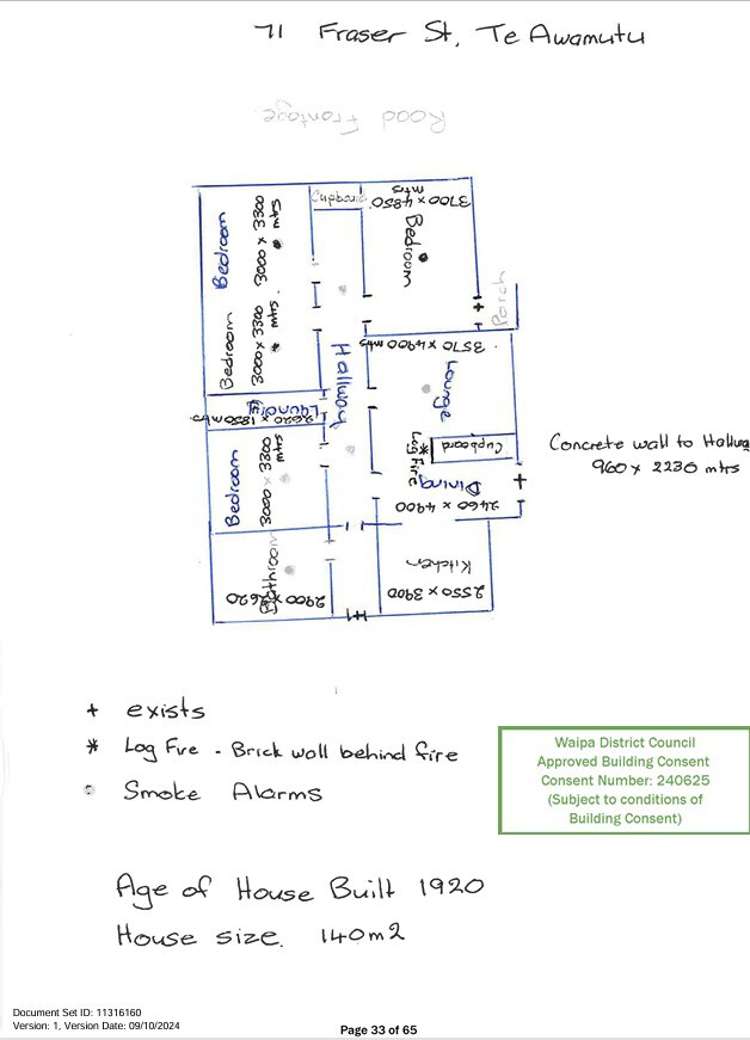 71 Fraser St, Te Awamutu
Road Frontage
Cupboard
3700 x 4850
mtrs
Bedroom
Bedroom
3000 x 3300
mtrs
Porch
Bedroom
3000 x 3300
mtrs
Hallway
3570 x 4900 mtrs
Lounge
Laundry
2620 x 1850 mtrs
Cupboard
Log Fire
Concrete wall to Hallway
960 x 2230 mtrs
Bedroom
3000 x 3300
mtrs
Dining
2460 x 4900
Bathroom
2900 x 2620
Kitchen
2550 x 3900
+ exists
* Log Fire - Brick wall behind fire
Smoke Alarms
Waipa District Council
Approved Building Consent
Consent Number: 240625
(Subject to conditions of
Building Consent)
Age of House Built 1920
House size. 140m2
Document Set ID: 11316160
Version: 1, Version Date: 09/10/2024
Page 33 of 65